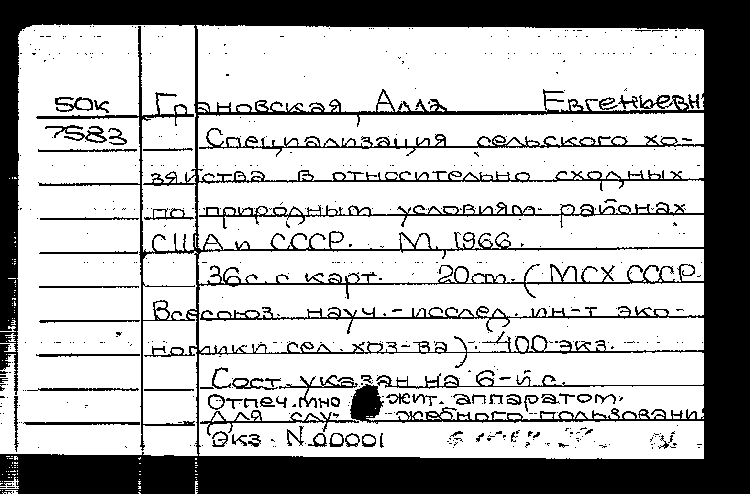 50к Грановская, Алла Евгеньевн
7583 Специализация сельского хо-
зяйства в относительно сходных
по природным условиям районах
США и СССР. М., 1966.
36с. с карт. 20см. (МСХ СССР.
Всесоюз. науч.-исслед. ин-т эко-
номики сел. хоз-ва). 400 экз.
Сост. указан на 6-й с.
Отпеч. мно жит. аппаратом.
Для слу- жебного пользовани
Экз. N.00001